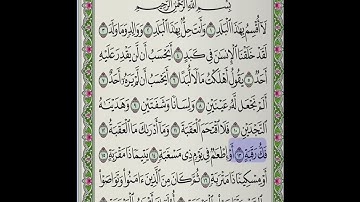 بِسْمِ اللَّهِ الرَّحْمَٰنِ الرَّحِيمِ
لَا أُقْسِمُ بِهَٰذَا الْبَلَدِ ١ وَأَنتَ حِلٌّ بِهَٰذَا الْبَلَدِ ٢ وَوَالِدٍ وَمَا وَلَدَ ٣
لَقَدْ خَلَقْنَا الْإِنسَانَ فِي كَبَدٍ ٤ أَيَحْسَبُ أَن لَّن يَقْدِرَ عَلَيْهِ
أَحَدٌ ٥ يَقُولُ أَهْلَكْتُ مَالًا لُّبَدًا ٦ أَيَحْسَبُ أَن لَّمْ يَرَهُ أَحَدٌ ٧
أَلَمْ نَجْعَل لَّهُ عَيْنَيْنِ ٨ وَلِسَانًا وَشَفَتَيْنِ ٩ وَهَدَيْنَاهُ
النَّجْدَيْنِ ١٠ فَلَا اقْتَحَمَ الْعَقَبَةَ ١١ وَمَا أَدْرَاكَ مَا الْعَقَبَةُ ١٢
فَكُّ رَقَبَةٍ ١٣ أَوْ إِطْعَامٌ فِي يَوْمٍ ذِي مَسْغَبَةٍ ١٤ يَتِيمًا ذَا مَقْرَبَةٍ ١٥
أَوْ مِسْكِينًا ذَا مَتْرَبَةٍ ١٦ ثُمَّ كَانَ مِنَ الَّذِينَ آمَنُوا وَتَوَاصَوْا